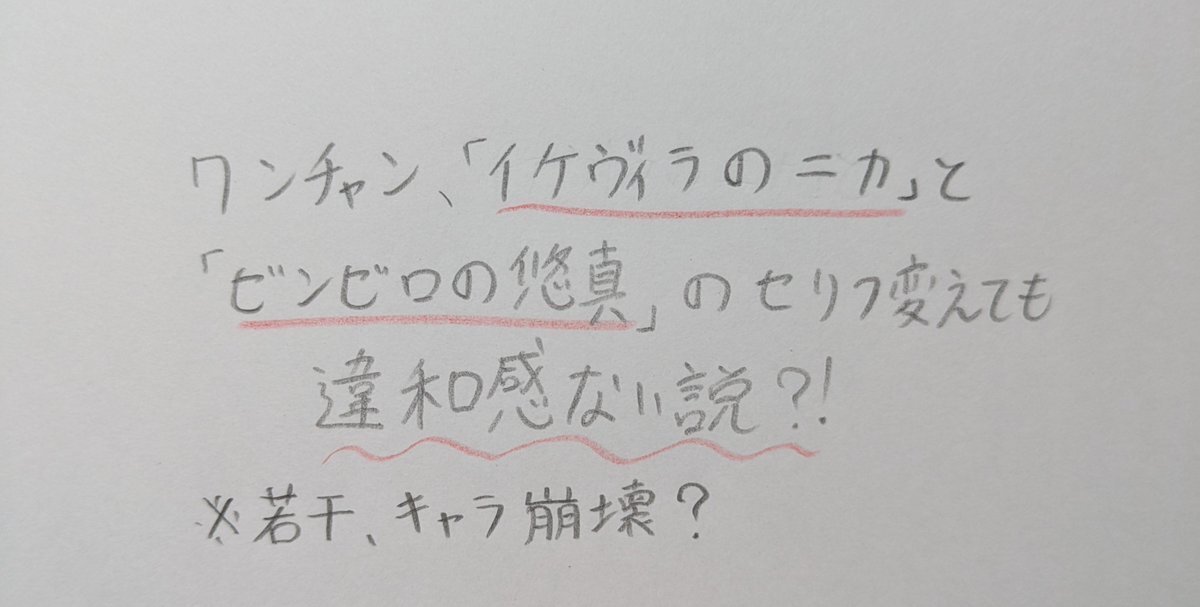 ワンチャン、「イケヴィラのニカ」と
「ビンゼロの悠真」のセリフ変えても
違和感ない説?!
※若干、キャラ崩壊?